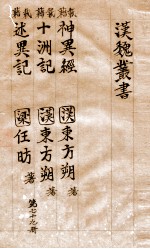 漢魏叢書
載籍 神異經 漢 東方朔 著
載籍 十洲記 漢 東方朔 著
載籍 述異記 梁 任昉 著
第七十九册